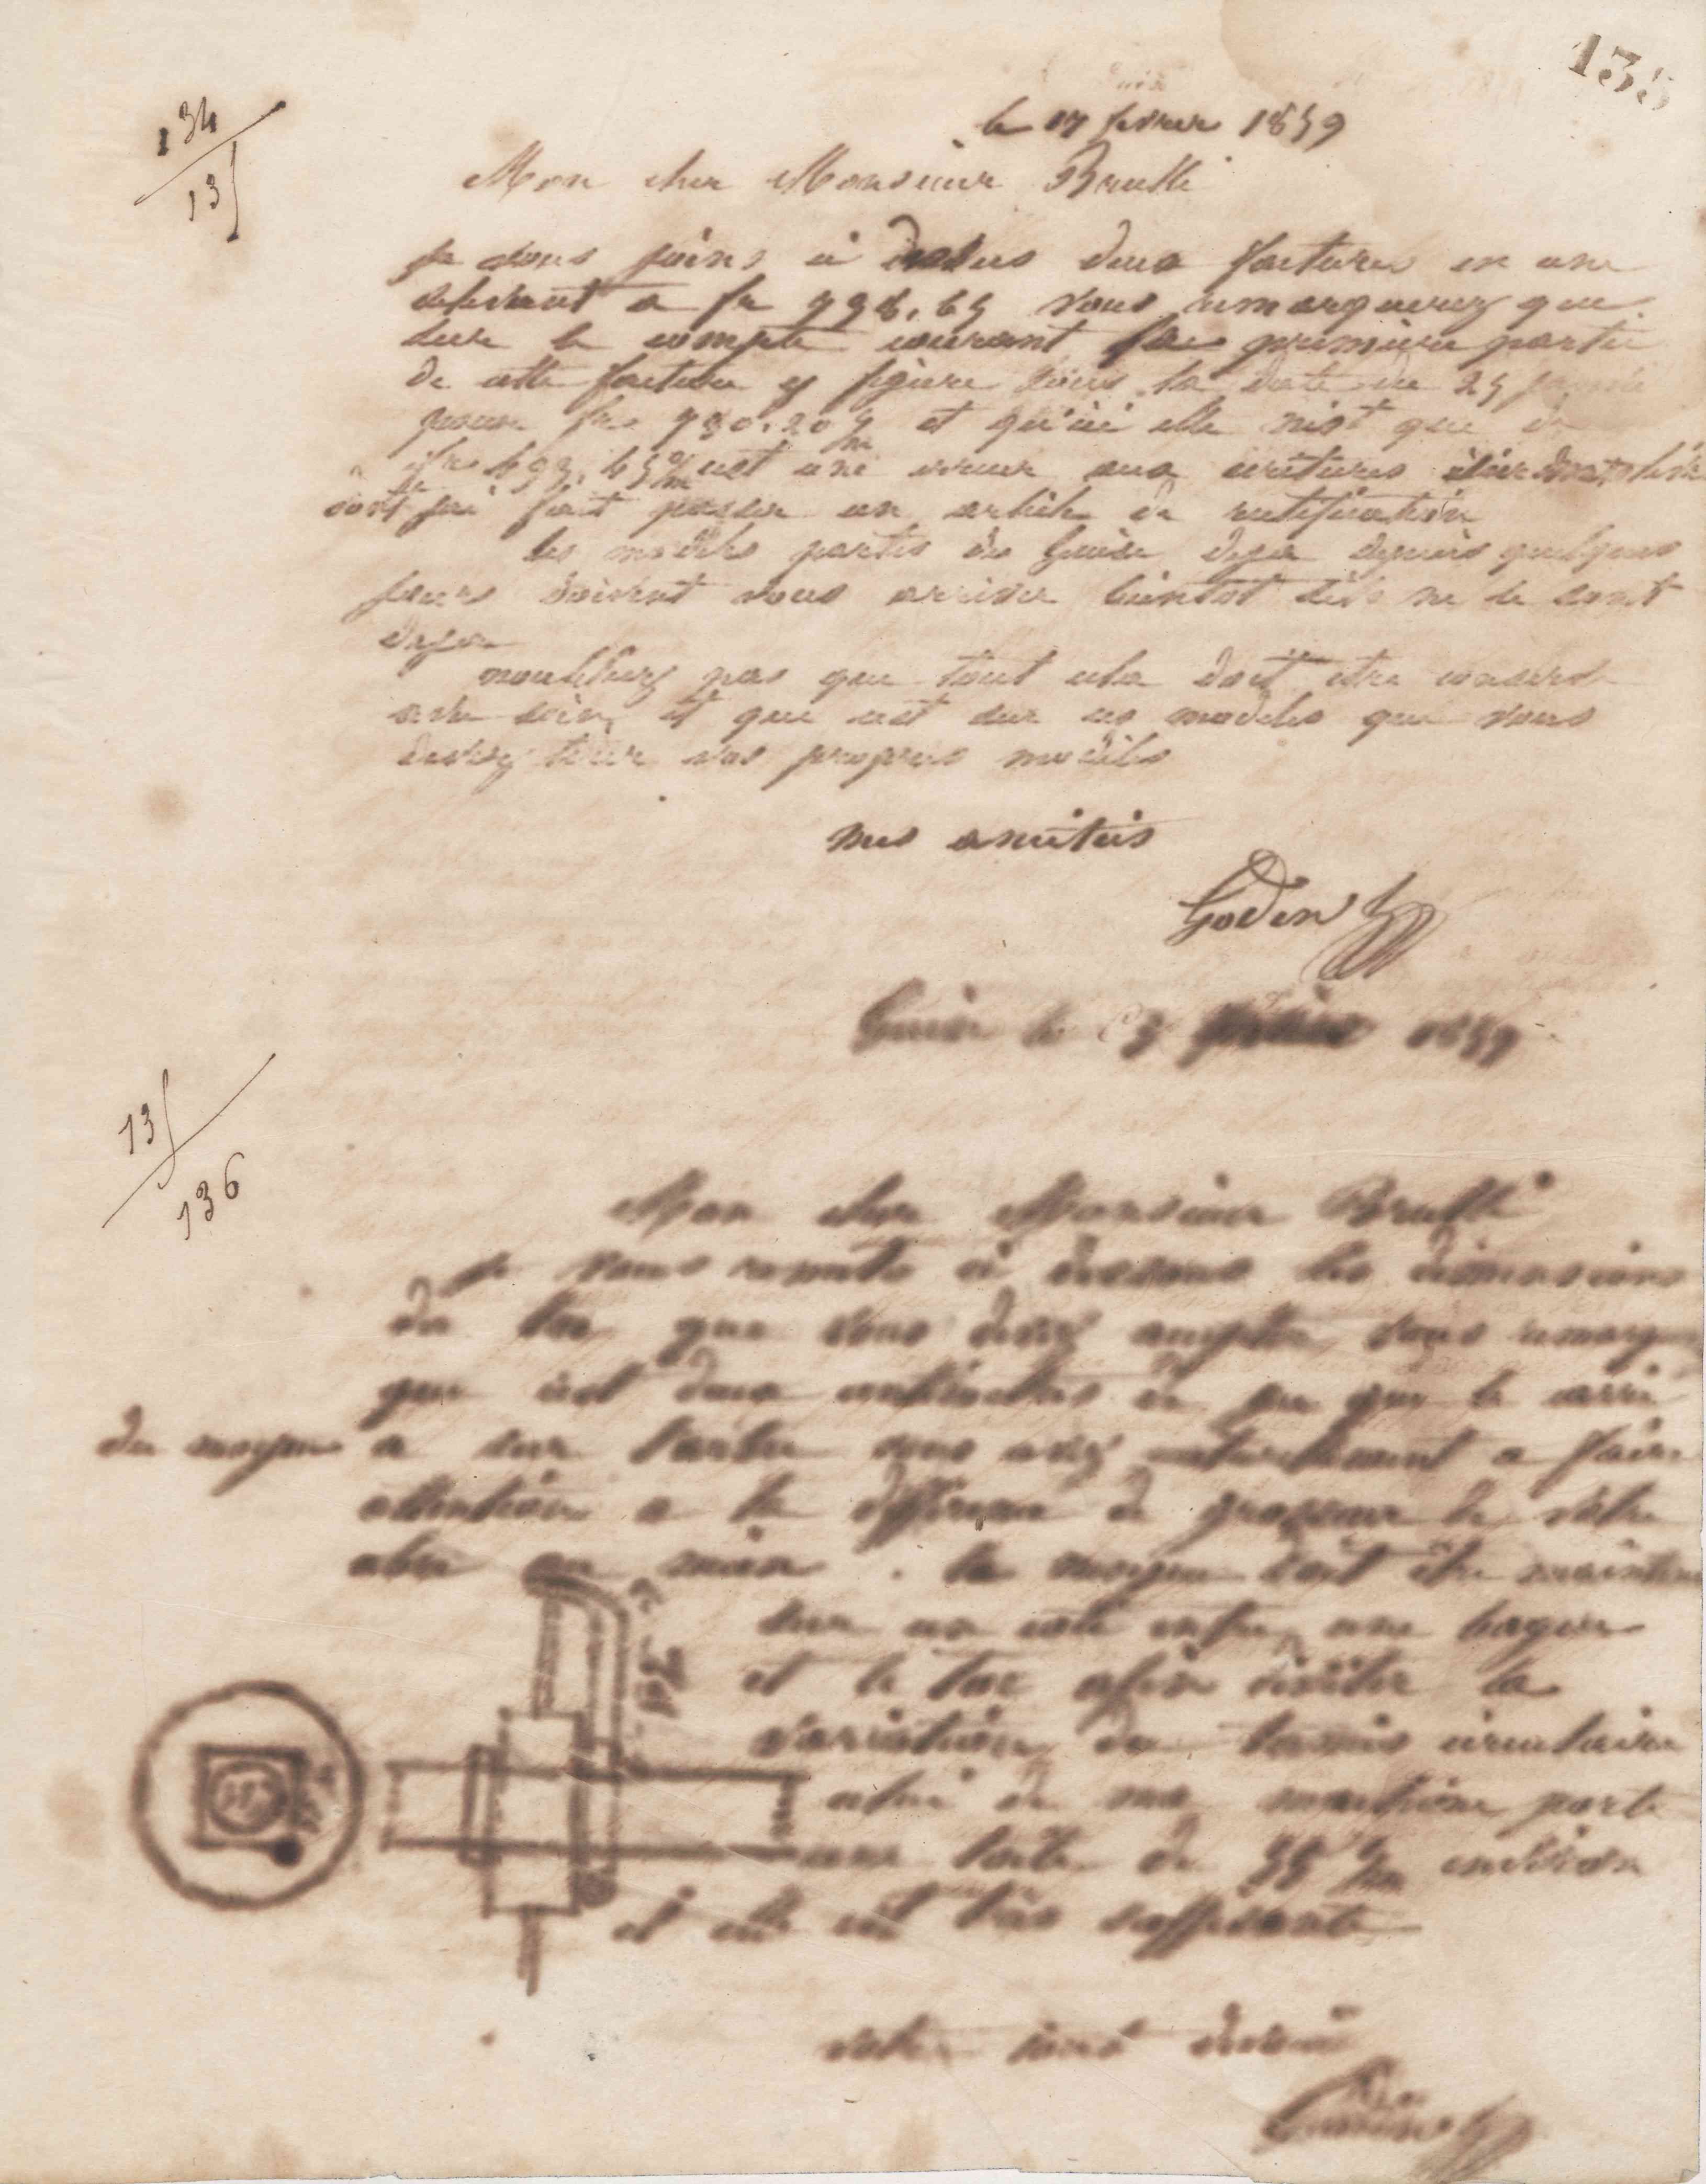 135
134
135
le 17 fevrier 1859
Mon cher Monsieur Brullé
je vous joins ci dessus deux factures en une
s'elevant a fr 998,65 vous remarquerez que
sur le compte courant la premiere partie
de cette facture y figure sous la date du 25
pour fr et qu'ici elle n'est que de
frs 693,65 c'est une erreur aux ecritures
dont j'ai fait passer un article de rectification
les modeles partis de Guise deja depuis quelques
jours doivent vous arriver bientot s'ils ne le sont
deja
noubliez pas que tout cela doit etre conservé
avec soin et que c'est sur ces modeles que vous
devez tirer vos propres modeles
mes amitiés
Godin
Guise le 1859
135
136
Mon cher Monsieur Brullé
je vous remets ci dessous les dimensions
du toc que vous devez accepter vous remarquez
que c'est deux centimetres
du moyeu a sur vous avez naturellement a faire
attention a la difference de grosseur de votre
arbre au mien . le moyeu doit être maintenu
sur un coté entre une bague
et le toc afin d'éviter la
variation du tamis circulaire
celui de ma machine porte
une boite de 55 m/m environ
et elle est très suffisante
votre tout dévoué
Godin